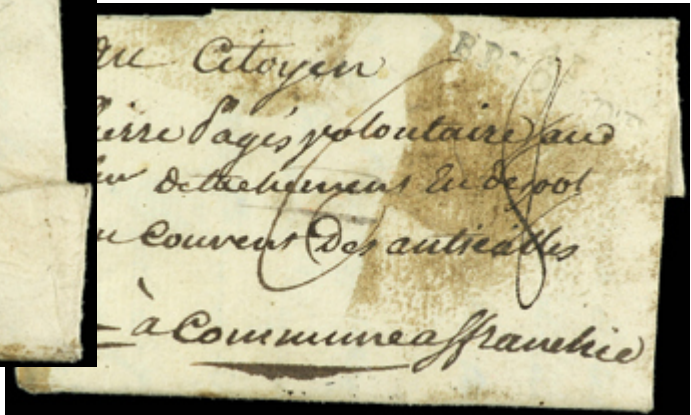 au Citoyen
ierre Pagés volontaire au
detachement en depot
u Couvent Des antiealles
à Commune affranchie